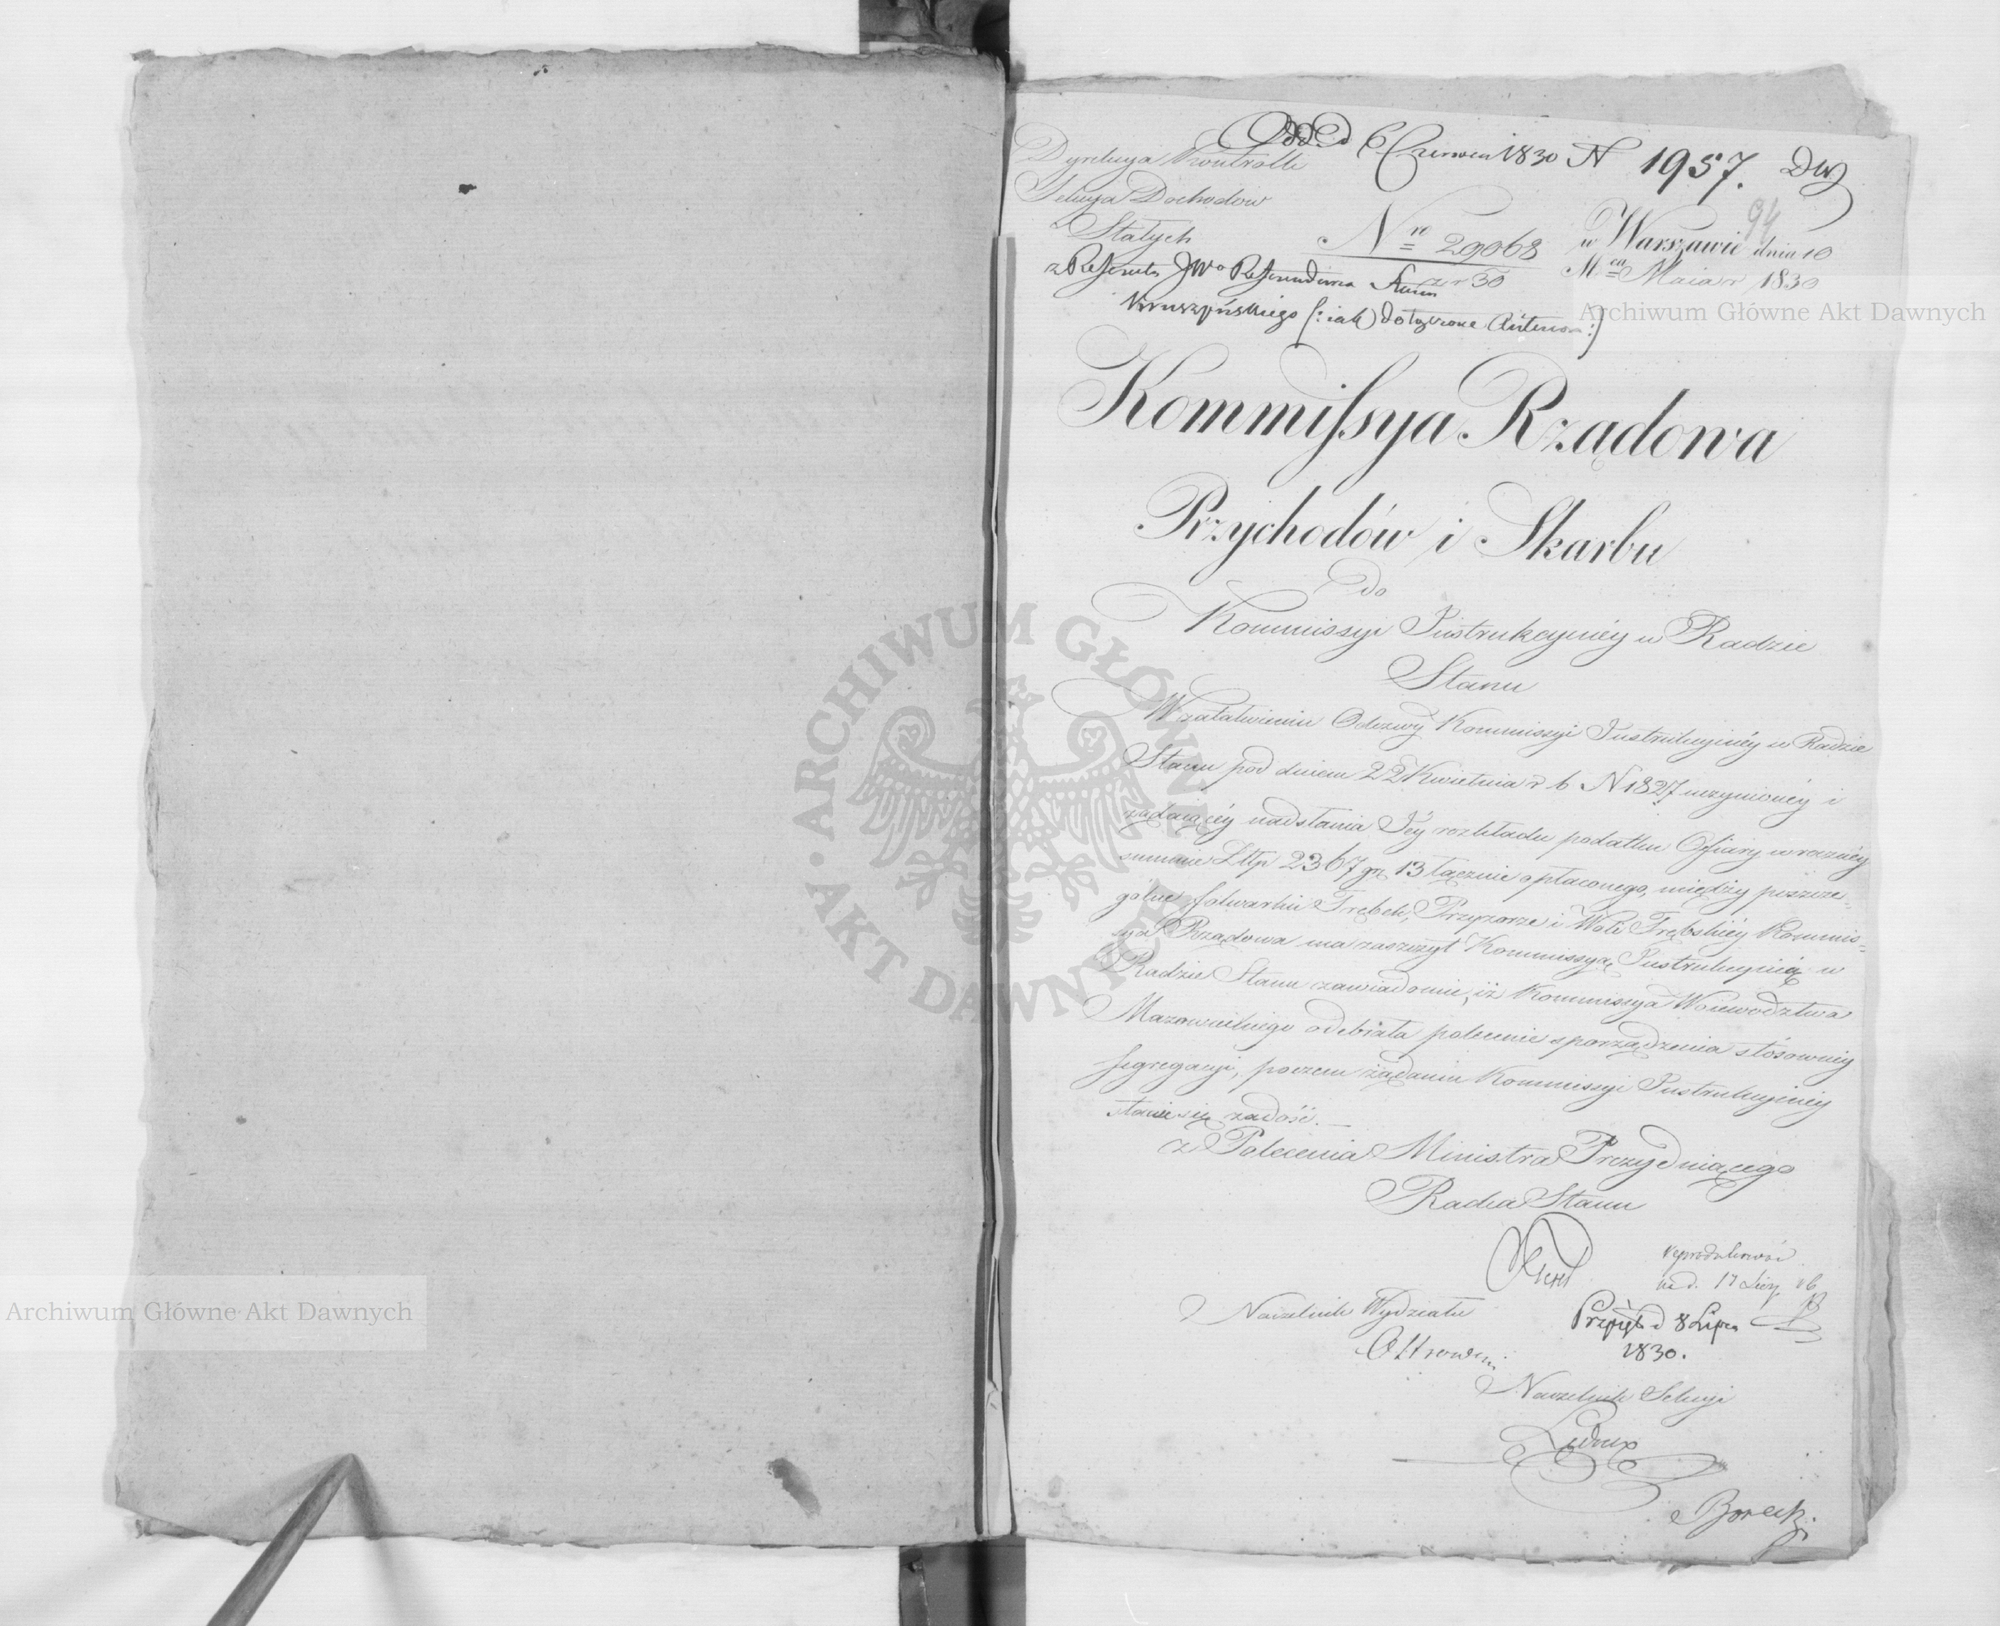 Odd. d 6 Czerwca 1830 N 1957. DW
Dyrekcya Kontrolli
Sekcya Dochodów
Stałych
No 29068
w Warszawie dnia 10
Mca Maia r 1830
94
z Referatu JWo Referendarza Stanu
Kruszyńskiego (: iak) dołączone Anteriora :)
Kommissya Rządowa
Przychodów i Skarbu
do
Kommissyi Instrukcyinéy w Radzie
Stanu
W załatwieniu Odezwy Kommissyi Instrukcyinéy w Radzie
Stanu pod dniem 22 Kwietnia r b N 1827 uczynionéy i
żądaiącéy nadesłania Jéy rozkładu podatku Ofiary w roczney
summie Złtp 2367 gr 13 łącznie opłaconego, między poszcze-
gólne folwarki Trębek, Przyzorze i Woli Trębskiéy Kommis-
sya Rządowa ma zaszczyt Kommissyą Instrukcyiną w
Radzie Stanu zawiadomić, iż Kommissya Woiewództwa
Mazowieckiego odebrała polecenie sporządzenia stósownéy
segregacyi, poczem żądaniu Kommissyi Instrukcyinéy
stanie się zadość.
z Polecenia Ministra Prezyduiącego
Radca Stanu
reprodukować
na d. 17 Lipca r b
Naczelnik Wydziału
Przyięto d 8 Lipca
1830.
Naczelnik Sekcyi
Borecki
Archiwum Główne Akt Dawnych
Archiwum Główne Akt Dawnych
ARCHIWUM GŁÓWNE AKT DAWNYCH